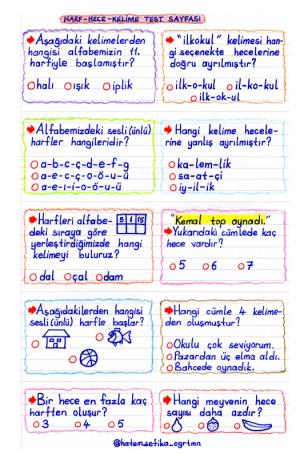 HARF-HECE-KELİME TEST SAYFASI
Aşağıdaki kelimelerden
hangisi alfabemizin 11.
harfiyle başlamıştır?
halı ışık iplik
"ilkokul" kelimesi han-
gi seçenekte hecelerine
doğru ayrılmıştır?
ilk-o-kul il-ko-kul
ilk-ok-ul
Alfabemizdeki sesli(ünlü)
harfler hangileridir?
a-b-c-ç-d-e-f-g
a-e-c-ç-o-ö-u-ü
a-e-ı-i-o-ö-u-ü
Hangi kelime hecele-
rine yanlış ayrılmıştır?
ka-lem-lik
sa-at-çi
iy-il-ik
Harfleri alfabe-
deki sıraya göre
yerleştirdiğimizde hangi
kelimeyi buluruz?
5 1 15
dal çal dam
"Kemal top oynadı."
Yukarıdaki cümlede kaç
hece vardır?
5 6 7
Aşağıdakilerden hangisi
sesli(ünlü) harfle başlar?
Hangi cümle 4 kelime-
den oluşmuştur?
Okulu çok seviyorum.
Pazardan üç elma aldı.
Bahçede oynadık.
Bir hece en fazla kaç
harften oluşur?
3 4 5
Hangi meyvenin hece
sayısı daha azdır?
@hatem_sefika_ogrtmn